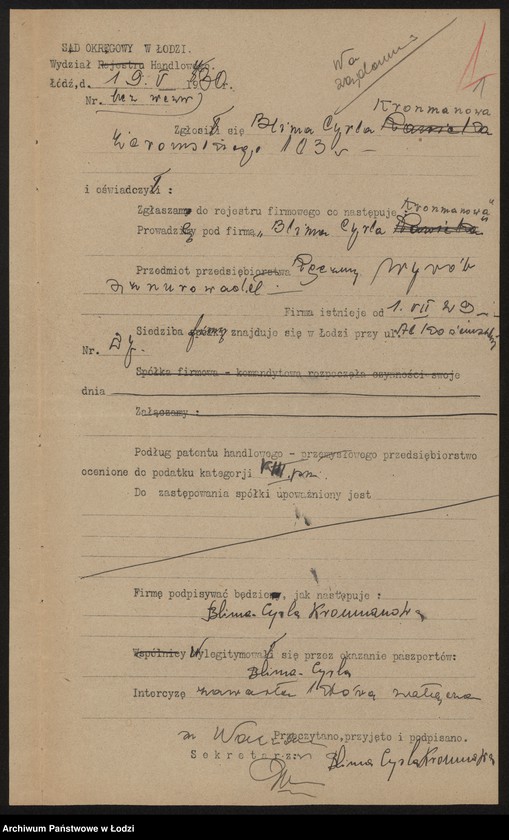 SĄD OKRĘGOWY W ŁODZI.
Wydział Rejestru Handlowego.
Na
Łódź,d. 19.V 1930r.
1
Nr. bez wezw)
Kronmanowa
Zgłosiła się Blima Cyrla
Żeromskiego 103
i oświadczył :
Zgłaszam do rejestru firmowego co następuje:
Kronmanowa"
Prowadzę pod firmą „Blima Cyrla
Przedmiot przedsiębiorstwa Ręczny wyrób
sznurowadeł.
Firma istnieje od 1.VII 29
Siedziba spółki znajduje się w Łodzi przy ul.
Nr. 27.
Spółka firmowa - komandytowa rozpoczęła czynności swoje
dnia
Załączamy :
Podług patentu handlowego - przemysłowego przedsiębiorstwo
ocenione do podatku kategorji VIII prz.
Do zastępowania spółki upoważniony jest
Firmę podpisywać będziemy, jak następuje :
Blima-Cyrla Kronmanowa
Wspólnicy Wylegitymowali się przez okazanie paszportów:
Blima-Cyrla
Intercyzę zawarła którą załącza
Przeczytano,przyjęto i podpisano.
Sekretarz: Blima Cyrla Kronmanowa
Archiwum Państwowe w Łodzi